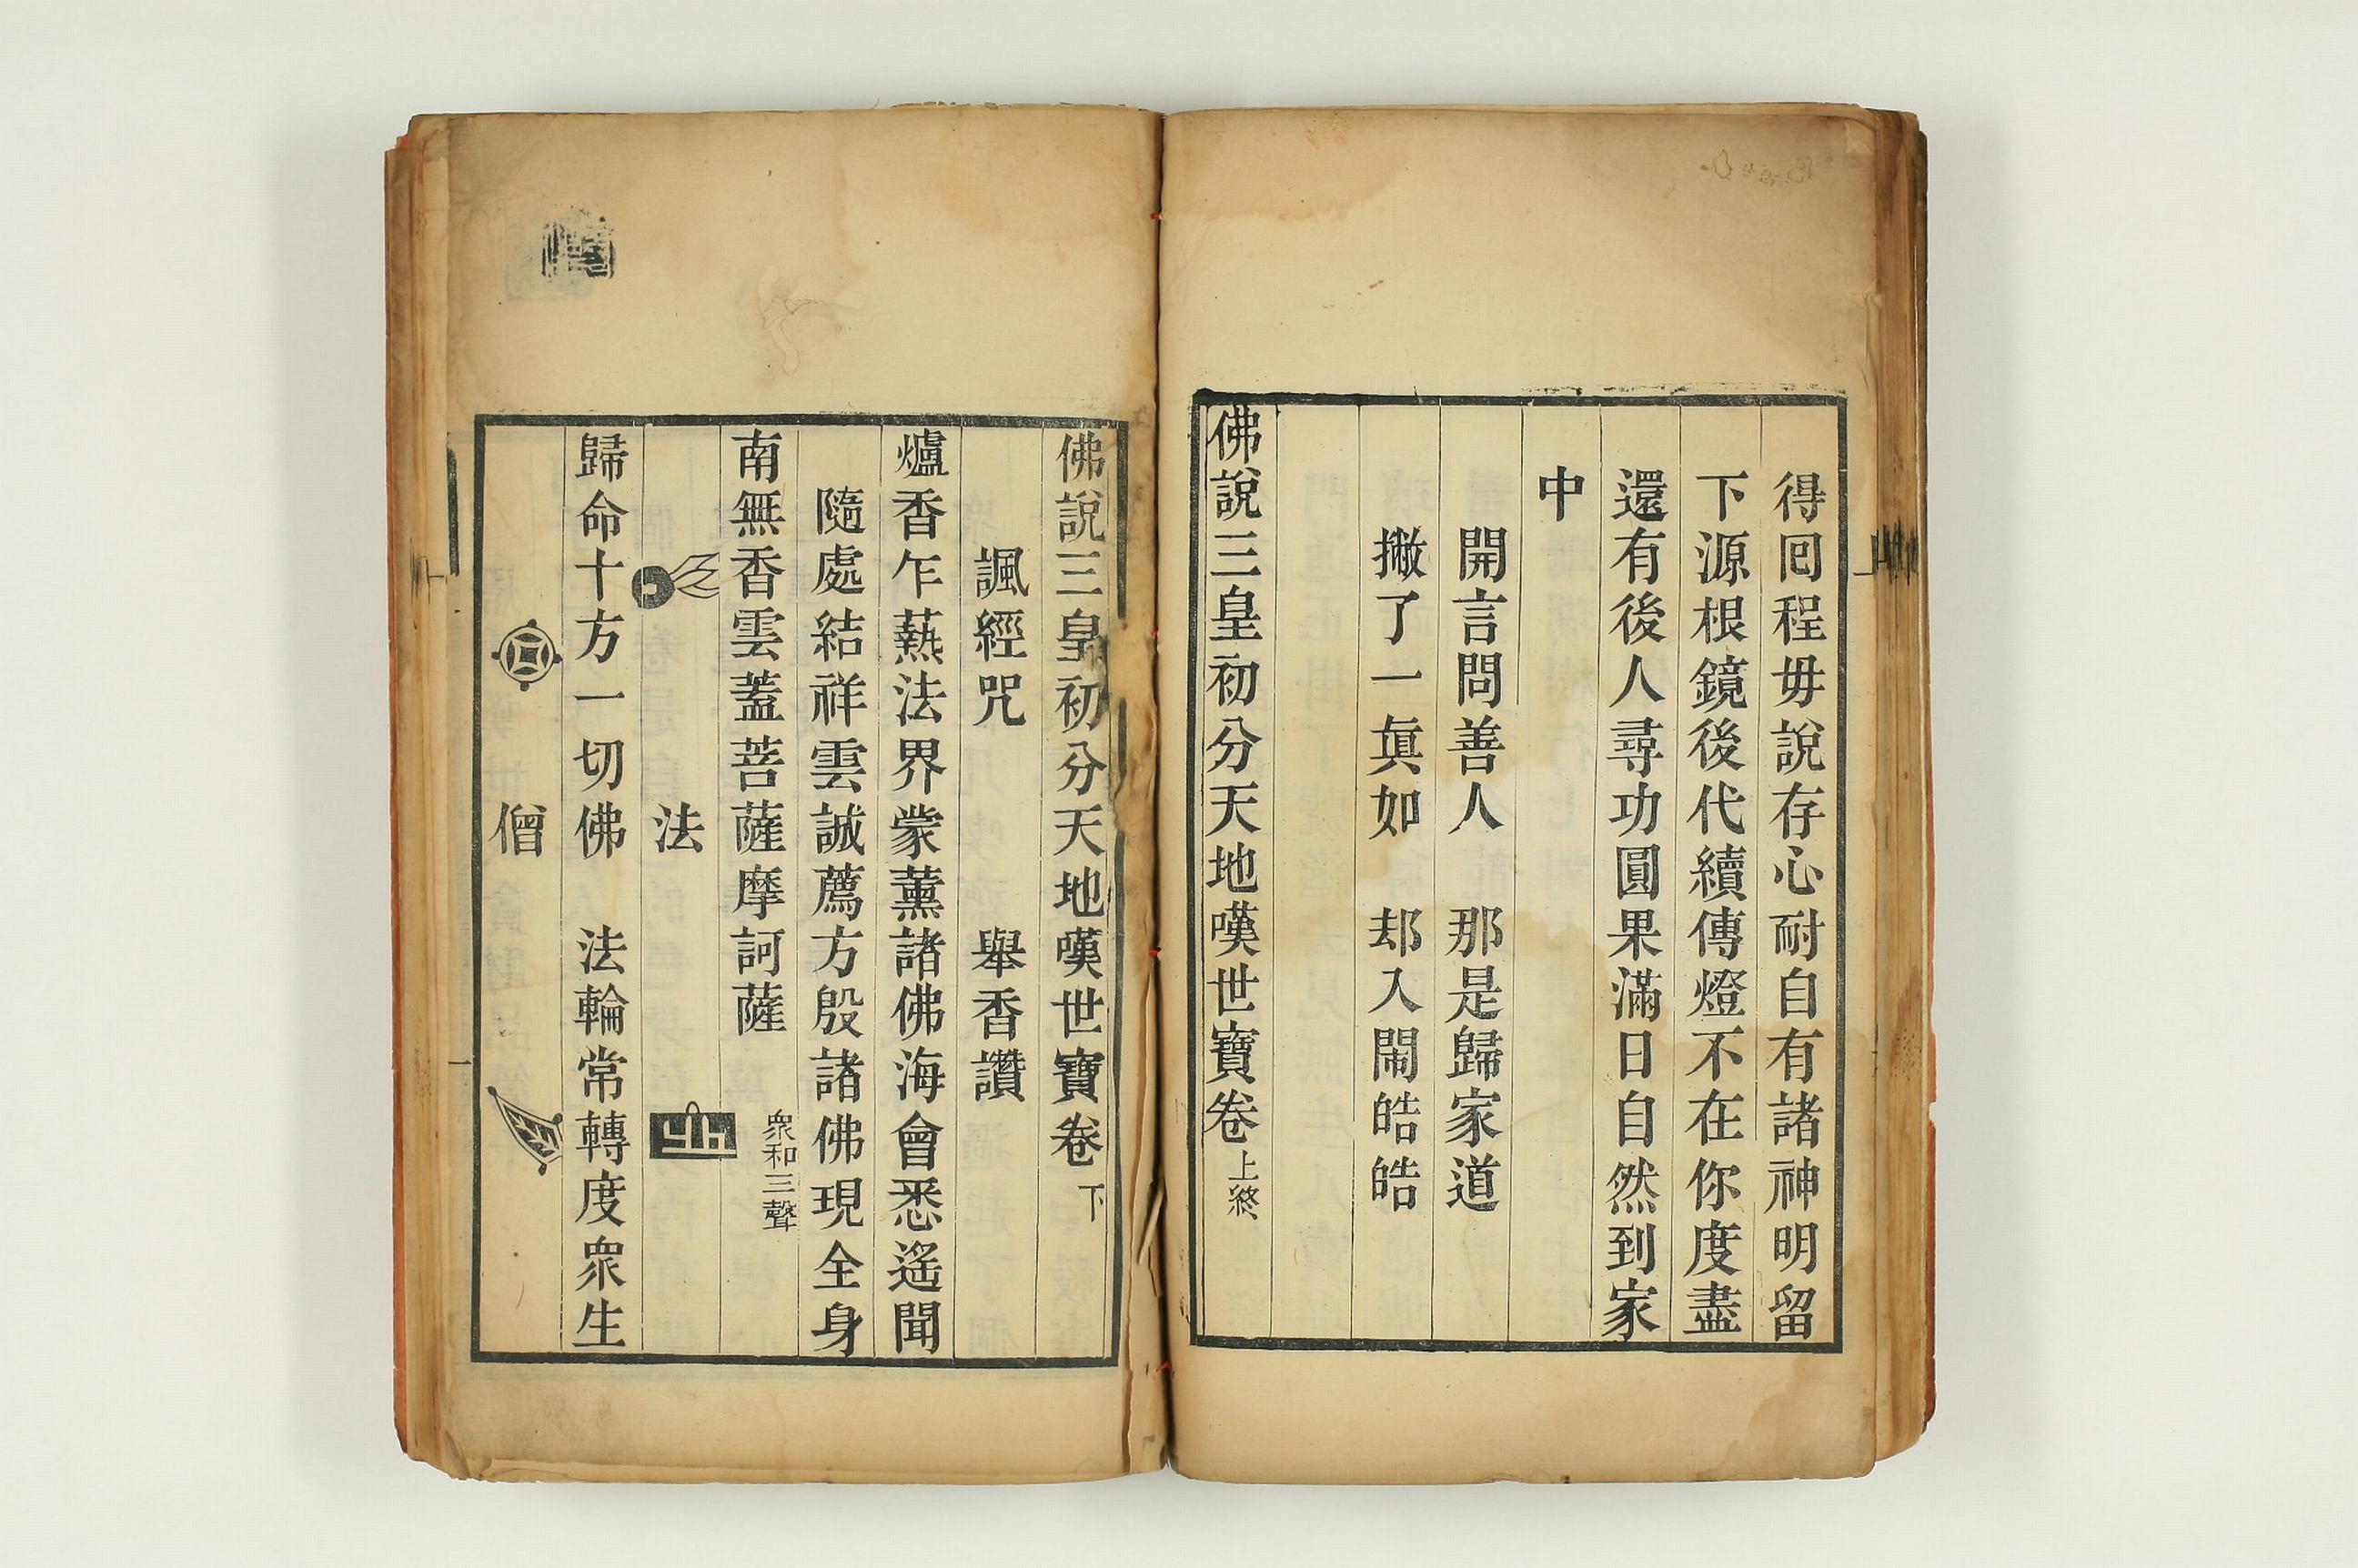 得囘程毋說存心耐自有諸神明留
下源根鏡後代續傳燈不在你度盡
還有後人尋功圓果滿日自然到家
中
開言問善人　那是歸家道
撇了一眞如　却入鬧皓皓
佛說三皇初分天地嘆世寶卷上終
佛說三皇初分天地嘆世寶卷下
諷經咒　舉香讚
爐香乍爇法界蒙薰諸佛海會悉遙聞
隨處結祥雲誠薦方殷諸佛現全身
南無香雲蓋菩薩摩訶薩 衆和三聲
法
歸命十方一切佛　法輪常轉度衆生
僧